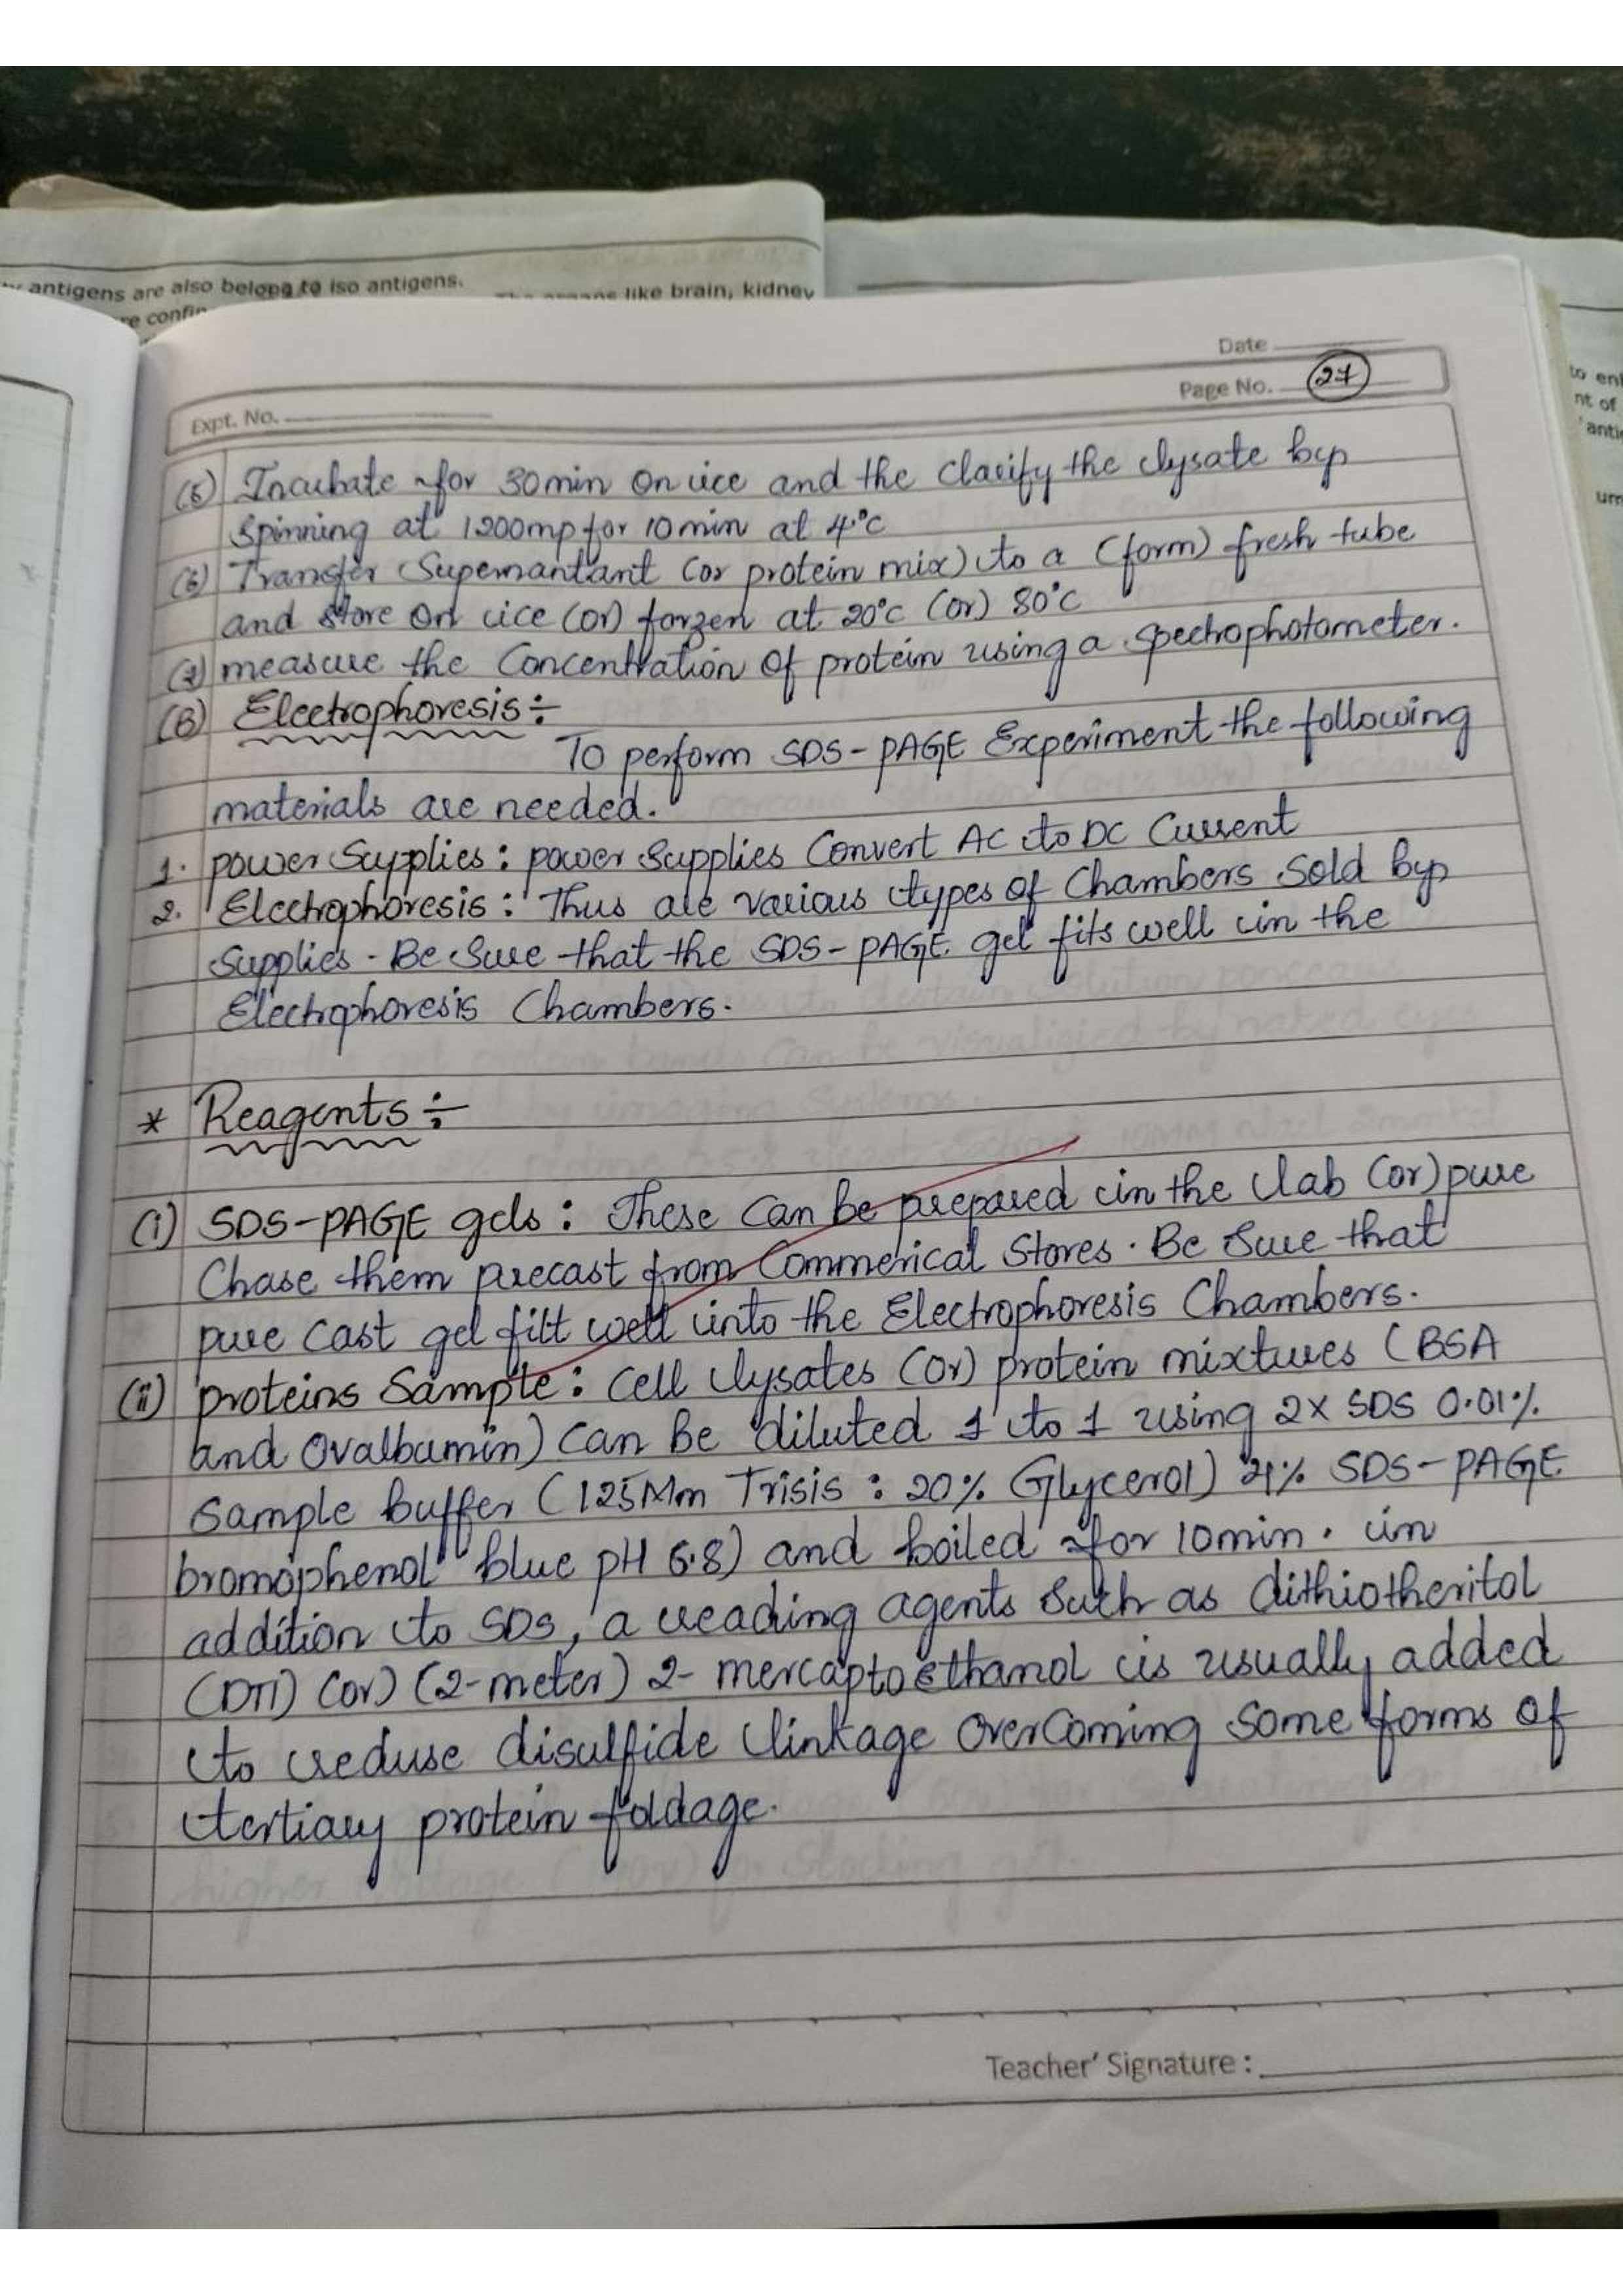 antigens are also belong to iso antigens.
like brain, kidney
Date
Page No. 27
Expt. No.
(5) Incubate for 30min on ice and the Clarify the lysate by
spinning at 1200mp for 10min at 4°c
(6) Transfer Supernantant (or protein mix) to a (form) fresh tube
and store on ice (or) forzen at 20°c (or) 80°c
(7) measure the Concentration of protein using a spectrophotometer.
(B) Electrophoresis:-
To perform SDS-PAGE Experiment the following
materials are needed.
1. power Supplies: power supplies Convert AC to DC Current
2. Electrophoresis: Thus are various types of Chambers Sold by
Supplies. Be Sure that the SDS-PAGE gel fits well in the
Electrophoresis Chambers.
* Reagents:-
(i) SDS-PAGE gels: These Can be prepared in the lab (or) pure
Chase them precast from Commerical Stores. Be Sure that
pure cast gel filt well into the Electrophoresis Chambers.
(ii) proteins Sample: Cell lysates (or) protein mixtures (BSA
and Ovalbumin) Can be diluted 1 to 1 using 2x SDS 0.01%
sample buffer (125Mm Trisis: 20% Glycerol) 4% SDS-PAGE
bromophenol blue pH 6.8) and boiled for 10min. in
addition to SDS, a reading agents such as dithiotheritol
(DTT) (or) (2-meter) 2- mercaptoethanol is usually added
to reduse disulfide linkage overcoming some forms of
tertiary protein foldage.
Teacher' Signature :